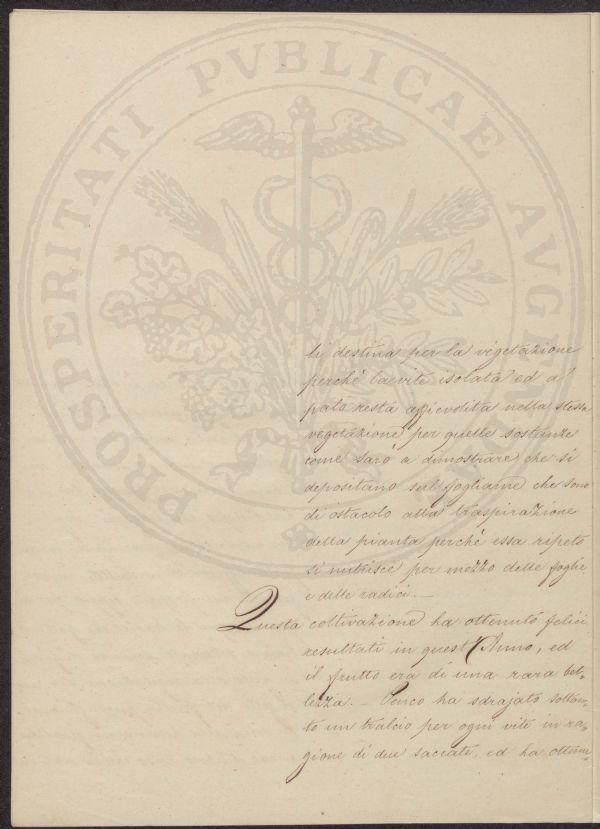 PROSPERITATI PVBLICAE AVGENDAE
li destina per la vegetazione
perchè la vite isolata ed a'
palo resta affievolita nella stessa
vegetazione per quelle sostanze
come sarò a dimostrare che si
depositano sul fogliame che sono
di ostacolo alla traspirazione
della pianta perchè essa repeto
si nutrisce per mezzo delle foglie
e delle radici. _
Questa coltivazione ha ottenuto felici
resultati in quest'Anno, ed
il frutto era di una rara bel-
lezza. _ ha sdrajato soltan-
to un tralcio per ogni vite in ra-
gione di due saccate, ed ha ottenu-